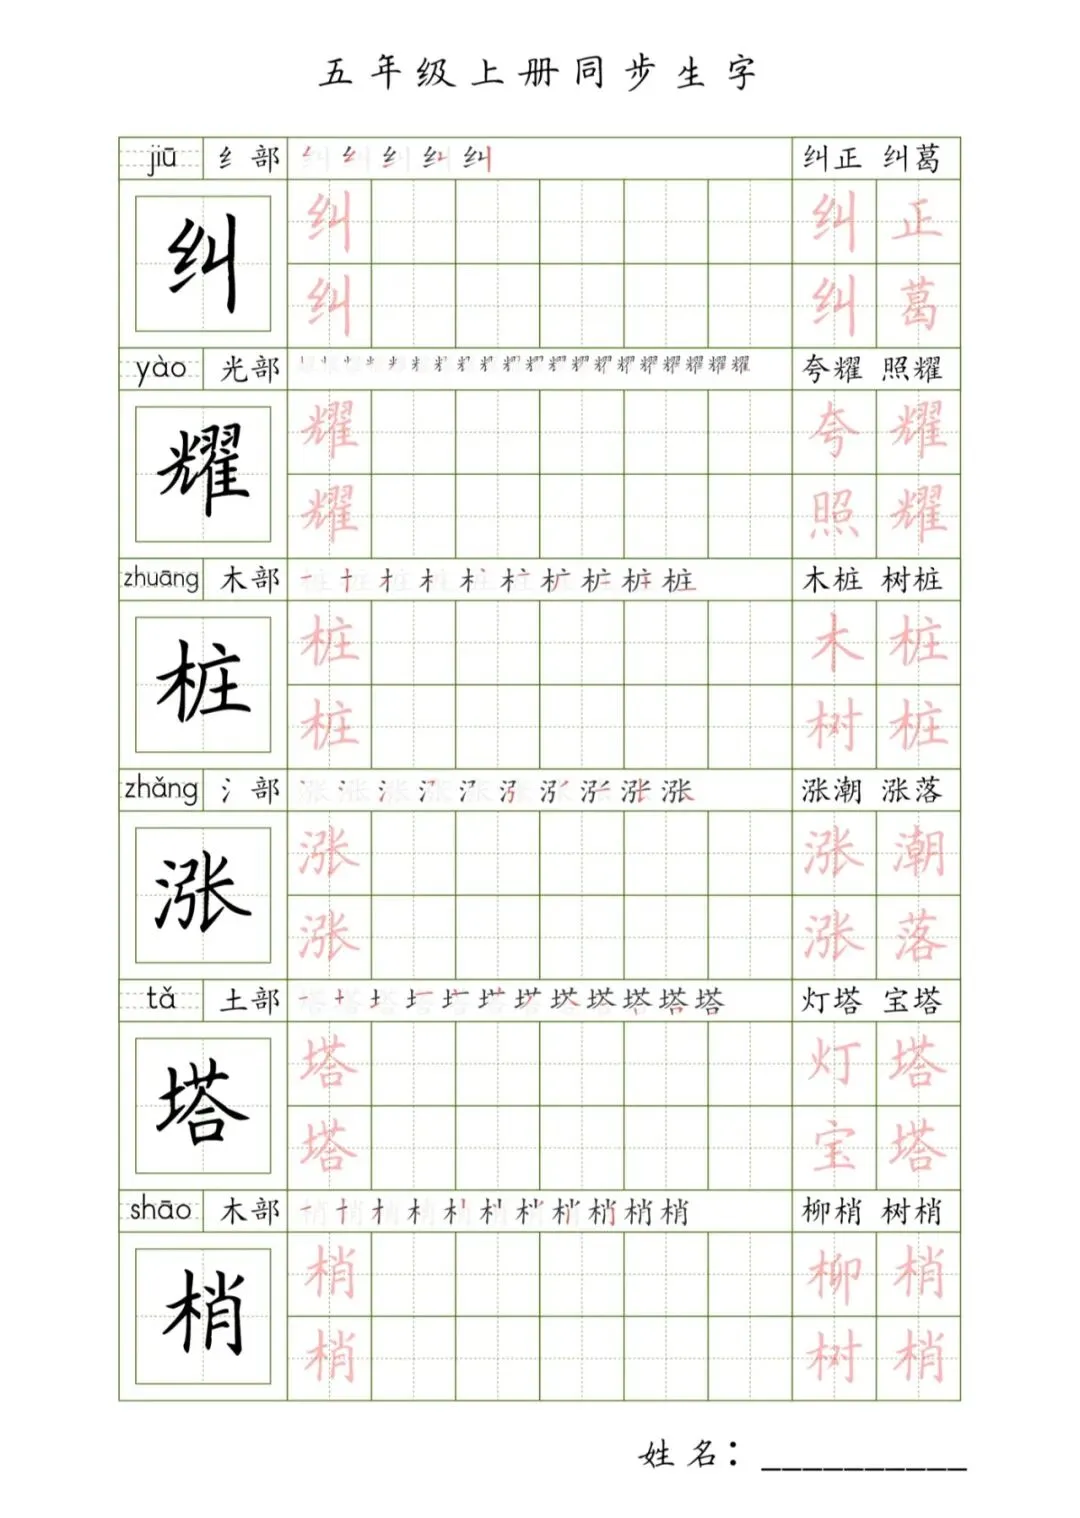 五年级上册同步生字
jiū 纟部 纠正 纠葛
纠 纠 纠 正
纠 纠 葛
yào 光部 夸耀 照耀
耀 耀 夸 耀
耀 照 耀
zhuāng 木部 木桩 树桩
桩 桩 木 桩
桩 树 桩
zhǎng 氵部 涨潮 涨落
涨 涨 涨 潮
涨 涨 落
tǎ 土部 灯塔 宝塔
塔 塔 灯 塔
塔 宝 塔
shāo 木部 柳梢 树梢
梢 梢 柳 梢
梢 树 梢
姓名：__________